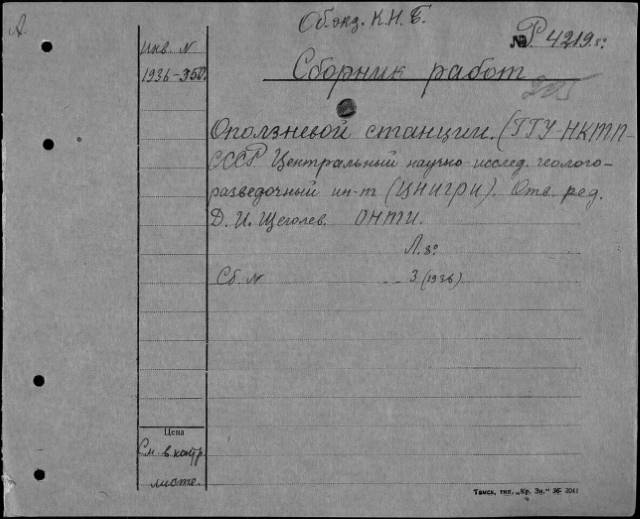 А.
Об. экз. К.Н.Б.
№ Р 4219 8º
Инв. N
1936-350.
Сборник работ
Оползневой станции. (ГГУ-НКТП-
СССР. Центральный научно-исслед. геолого-
разведочный ин-т (ЦНИГРИ). Отв. ред.
Д. И. Щеголев. ОНТИ.
Л. 8º
Сб. N 3 (1936)
Цена
См. в контр.
листе.
Томск, тип. „Кр. Зн.“ 36 2041